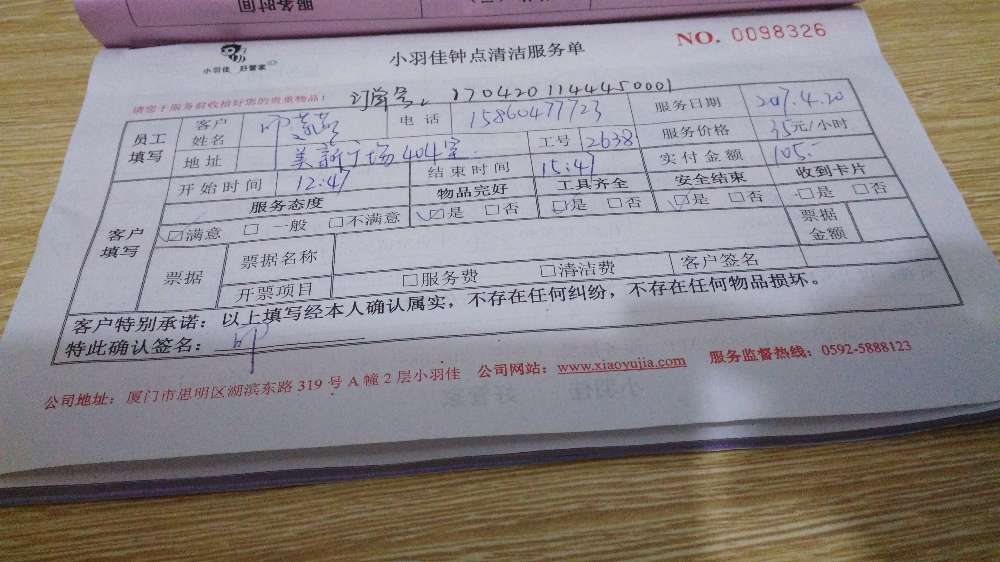 服务时间
小羽佳 好管家
小羽佳钟点清洁服务单
NO. 0098326
请您于服务前收拾好您的贵重物品!
订单号: 1704201144450001
员工填写 客户姓名 电话 15860477723 服务日期 2017.4.20
地址 美新广场404室. 工号 2638 服务价格 35元/小时
开始时间 12:47 结束时间 15:47 实付金额 105.-
客户填写 服务态度 物品完好 工具齐全 安全结束 收到卡片
☑满意 □一般 □不满意 ☑是 □否 ☑是 □否 ☑是 □否 □是 □否
票据 票据名称 票据金额
开票项目 □服务费 □清洁费 客户签名
客户特别承诺:以上填写经本人确认属实,不存在任何纠纷,不存在任何物品损坏。
特此确认签名:
公司地址:厦门市思明区湖滨东路319号A幢2层小羽佳 公司网站:www.xiaoyujia.com 服务监督热线:0592-5888123